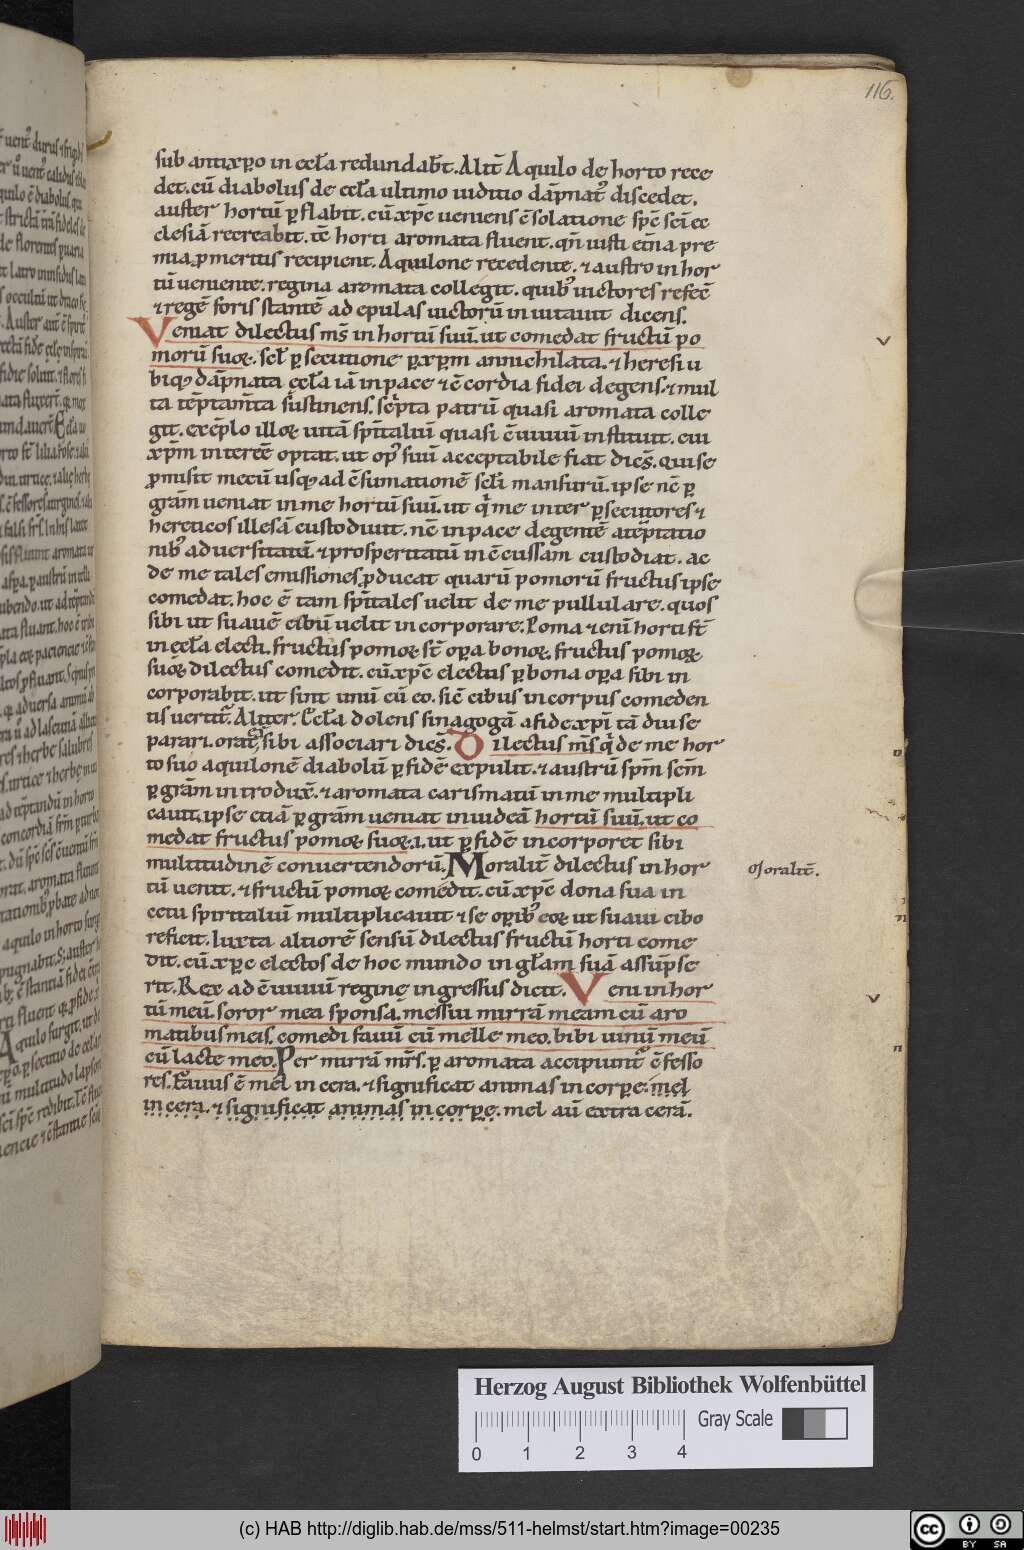 116.
sub antixp̄o in eccl̄a redundab̄t. Alit̄ Aquilo de horto rece
det. cū diabolus de eccl̄a ultimo iuditio dāpnat᷒ discedet.
auster hortū ꝑflabit. cū xp̄c ueniens c̄solatione sp̄c sc̄i ec
clesiā recreabit. tc̄ horti aromata fluent. qn̄ iusti et̄na pre
mia ꝓ meritis recipient. Aquilone recedente. ⁊ austro in hor
tū ueniente. regina aromata collegit. quib᷒ uictores refec̄
⁊ regē foris stantē ad epulas uictorū inuitauit dicens.
Veniat dilectus ms̄ in hortū suū. ut comedat fructū po
morū suoꝝ. scl̄ ꝑsecutione ꝑ xp̄m annichilata. ⁊ heresi u
biqꝫ dāpnata eccl̄a iā in pace ⁊ c̄cordia fidei degens. ⁊ mul
ta tēptam̄ta sustinens. sc̄pta patrū quasi aromata colle
git. exēplo illoꝝ uitā sp̄italiū quasi c̄uiuiū instituit. cui
xp̄m interēe optat. ut op᷒ suū acceptabile fiat dic̄s. Qui se
ꝓmisit mecū usqꝫ ad c̄sumationē scl̄i mansurū. ipse nc̄ ꝑ
grām ueniat in me hortū suū. ut q̇ me inter ꝑsecutores ⁊
hereticos illesā custodiuit. nc̄ in pace degentē a tēptatio
nib᷒ aduersitatū. ⁊ prosperitatū inc̄cussam custodiat. ac
de me tales emissiones ꝓducat quarū pomorū fructus ipse
comedat. hoc ē tam sp̄itales uelit de me pullulare. quos
sibi ut suauē cibū uelit incorporare. Poma ⁊ enī horti st̄
in eccl̄a electi. fructus pomoꝝ st̄ oꝑa bonoꝝ. fructus pomoꝝ
suoꝝ dilectus comedit. cū xp̄c electus ꝑ bona oꝑa sibi in
corporabit. ut sint unū cū eo. sic̄ cibus in corpus comeden
tis uertit᷒. Aliter. Eccl̄a dolens sinagogā a fide xp̄i tā diu se
parari. orat sibi associari dic̄s. Dilectus ms̄ q̇ de me hor
to suo aquilonē diabolū ꝑ fidē expulit. ⁊ austrū sp̄m sc̄m
ꝑ grām introdux̄. ⁊ aromata carismatū in me multipli
cauit. ipse etiā ꝑ grām ueniat in iudeā hortū suū. ut co
medat fructus pomoꝝ suoꝝ. .i. ut ꝑ fidē incorporet sibi
multitudinē conuertendorū. Moralit̄ dilectus in hor
tū uenit. ⁊ fructū pomoꝝ comedit. cū xp̄c dona sua in
cetu spiritaliū multiplicauit ⁊ se oꝑib᷒ eoꝝ ut suaui cibo
reficit. Iuxta altiorē sensū dilectus fructū horti come
dit. cū xp̄c electos de hoc mundo in gl̄am suā assūpse
rit. Rex ad c̄uiuiū regine ingressus dicit. Veni in hor
tū meū. soror mea sponsa. messui mirrā meam cū aro
matibus meis. comedi fauū cū melle meo. bibi uinū meū
cū lacte meo. Per mirrā mr̄s. ꝑ aromata accipiunt᷒ c̄fesso
res. Fauus ē mel in cera. ⁊ significat animas in corꝑe. mel
in cera. ⁊ significat animas in corꝑe. mel aū extra cerā.
Moralit̄.
Herzog August Bibliothek Wolfenbüttel
Gray Scale
0 1 2 3 4
(c) HAB http://diglib.hab.de/mss/511-helmst/start.htm?image=00235
cc BY SA